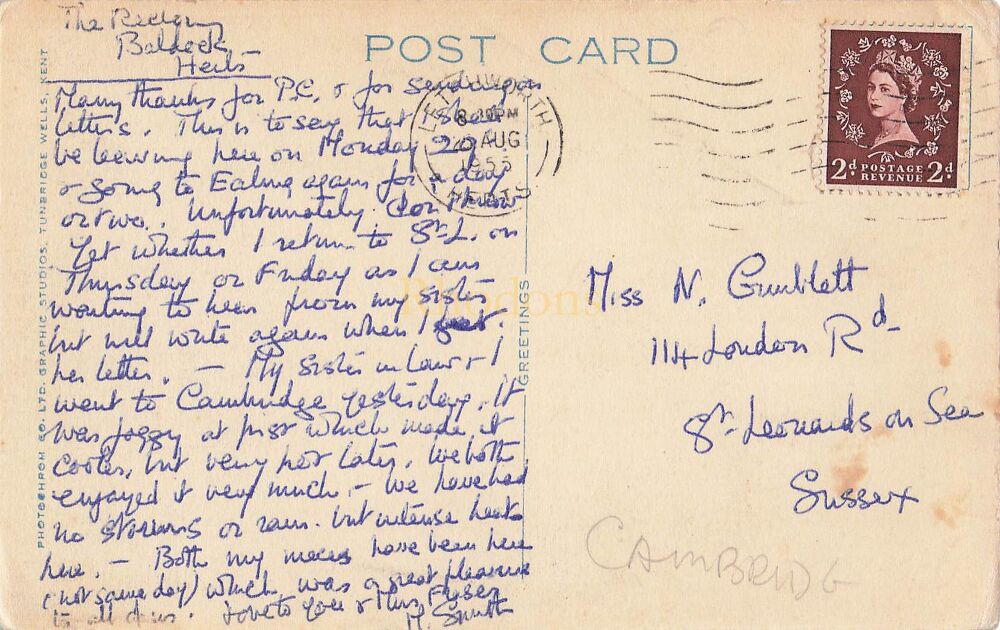 The
Baldock
Herts
POST CARD
Many thanks for P.C. & for sending on
letters. This is to say that I shall
be leaving here on Monday 29th
& going to Ealing again for a day
or two. Unfortunately don't know
yet whether I return to St. L. on
Thursday or Friday as I am
wanting to hear from my sister
but will write again when I get
her letter. — My sister in law & I
went to Cambridge yesterday. It
was foggy at first which made it
cooler, but very hot later. We both
enjoyed it very much. — We have had
no storms or rain. but intense heat
here. — Both my nieces have been here
(not same day) which was a great pleasure
to all of us. Love to you & Miss Fraser
M. Smith
PHOTOCHROM CO. LTD. GRAPHIC STUDIOS, TUNBRIDGE WELLS, KENT
GREETINGS
LETCHWORTH
8-30PM
AUG
1955
HERTS
2d POSTAGE REVENUE 2d
Miss N. Gumblett
114 London Rd
St. Leonards on Sea
Sussex
CAMBRIDGE